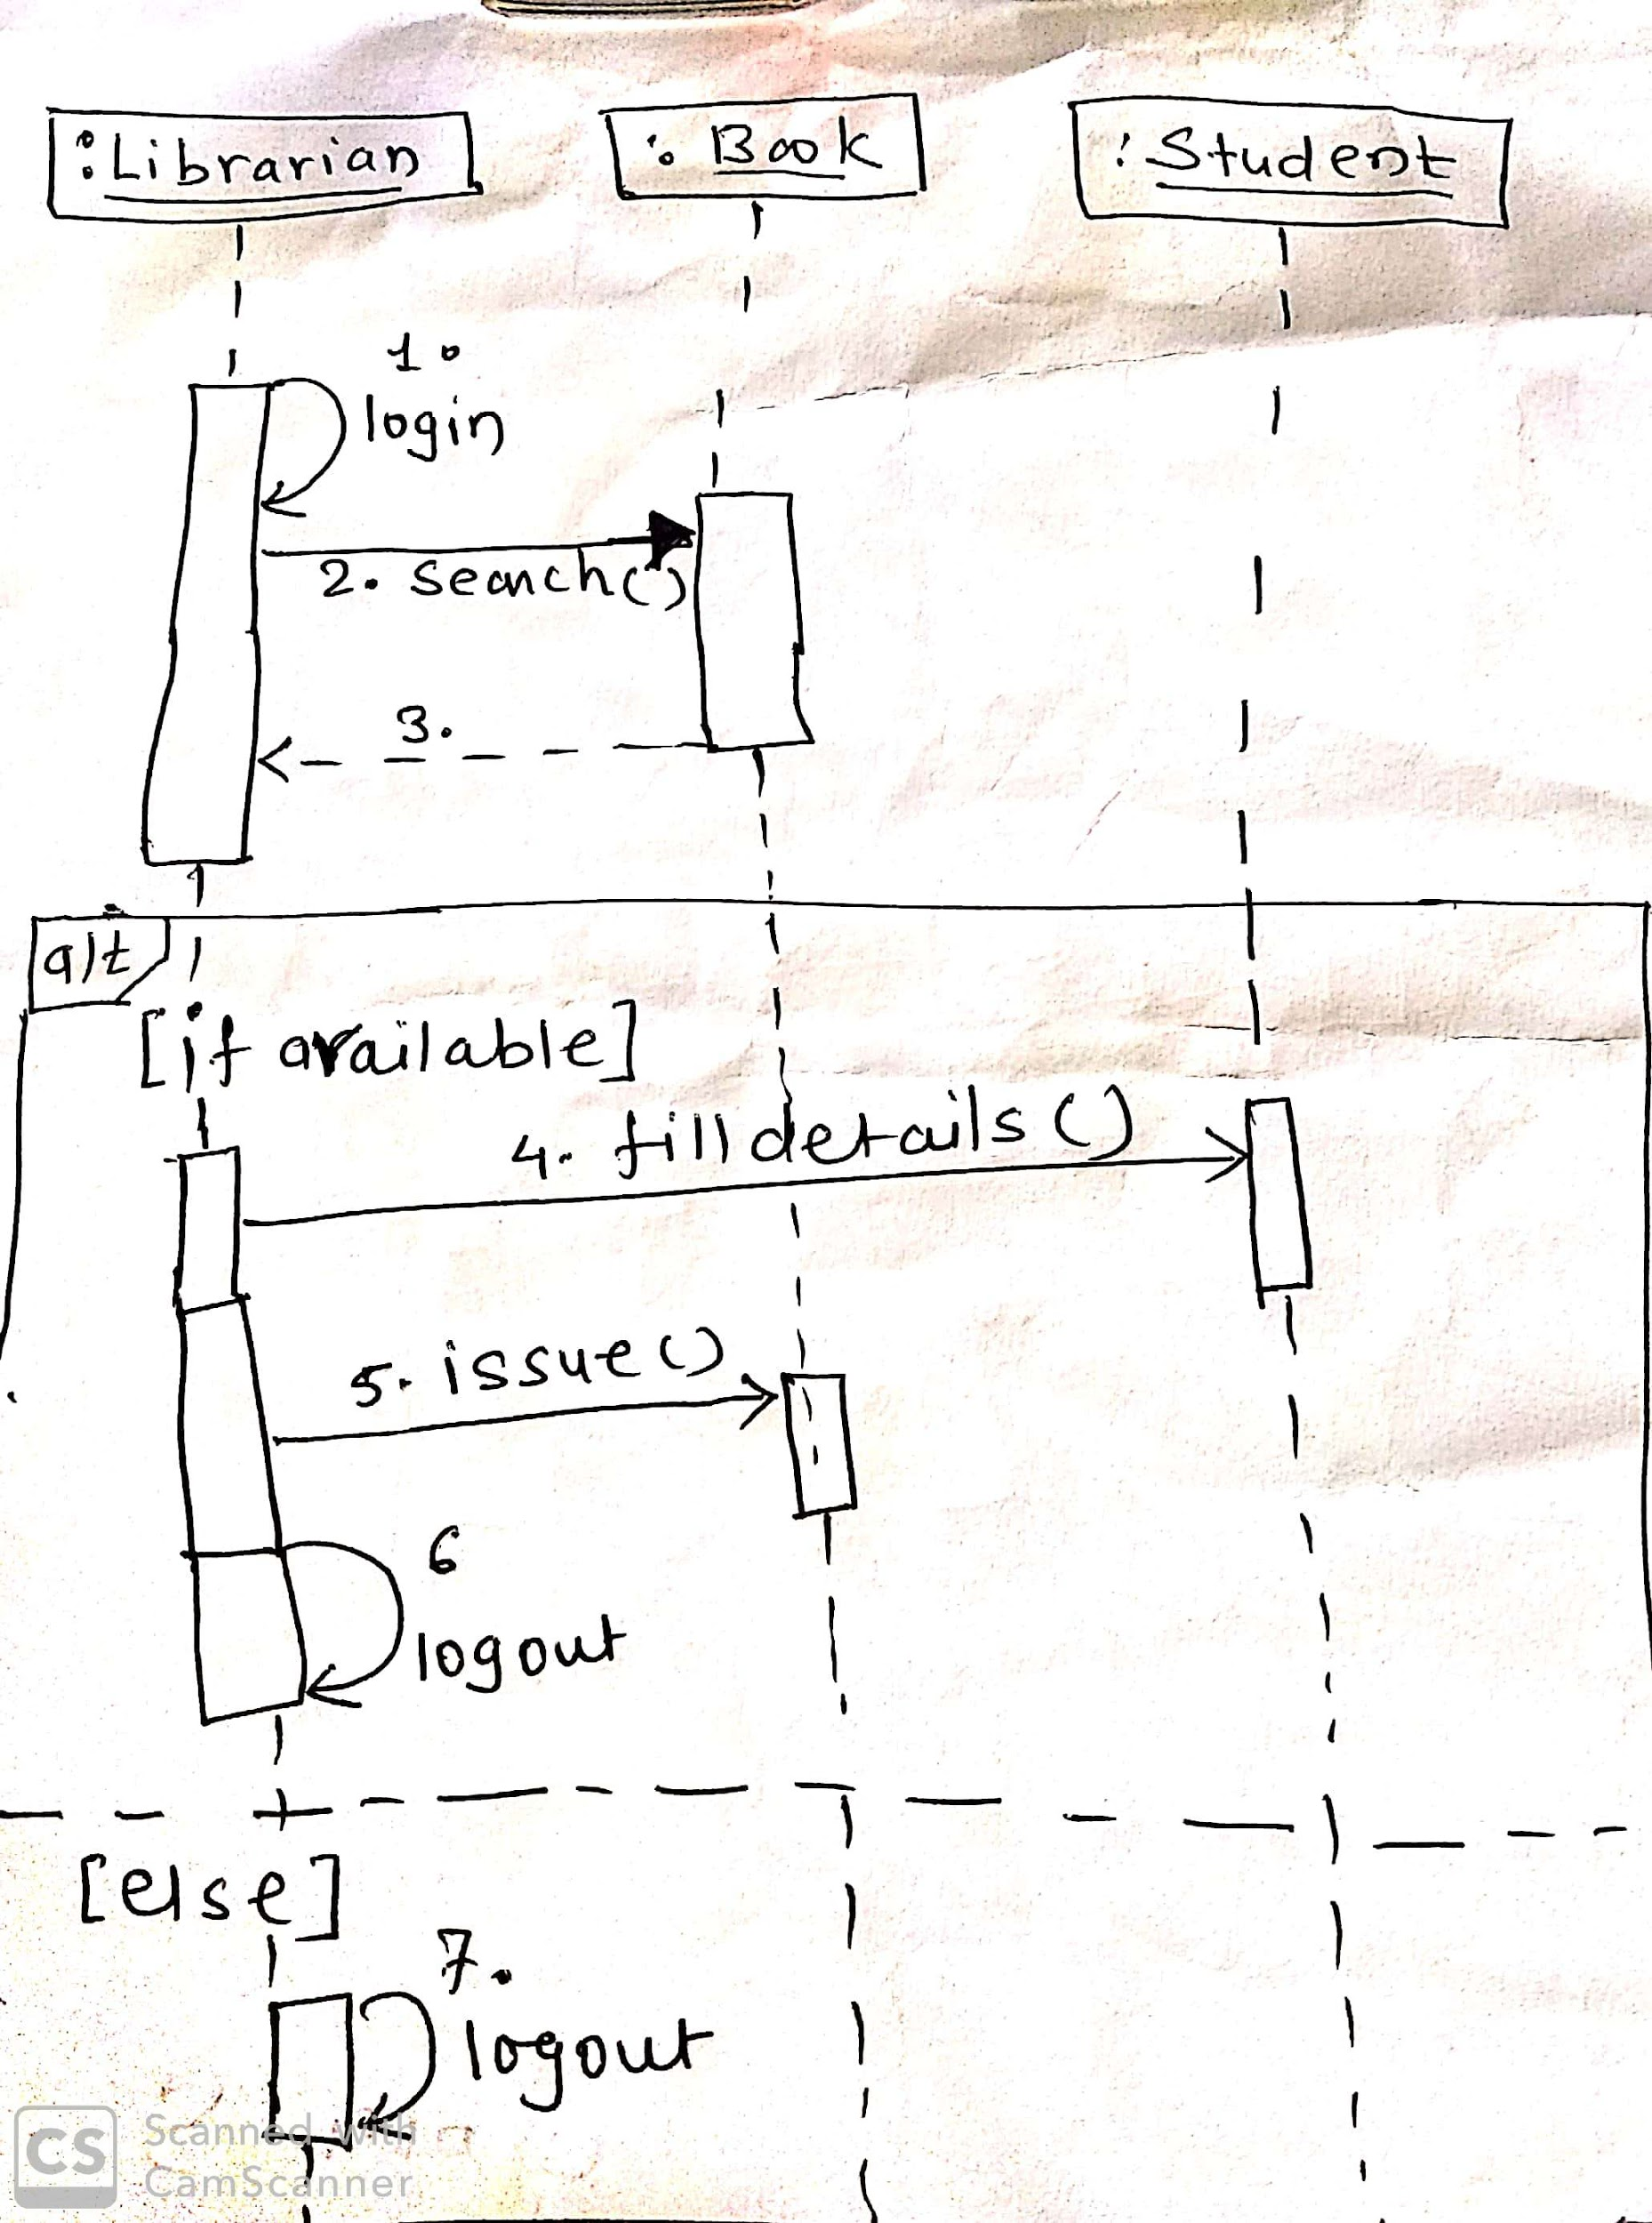 :Librarian
: Book
: Student
1.
login
2. search()
3.
alt
[if available]
4. fill details ()
5. issue ()
6
logout
[else]
7.
logout
CS
Scanned with
CamScanner